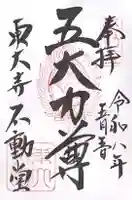 奉拝
令和八年
五月五日
五大力尊
東大寺
不動堂